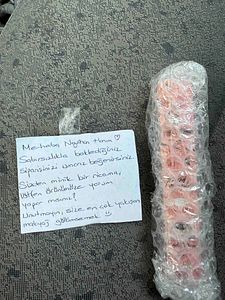 Merhaba Neyhan Hanım ♡
Sabırsızlıkla beklediğiniz
siparişinizi umarız beğenirsiniz
Sizden minik bir ricamız,
lütfen ürününüze yorum
yapar mısınız?
Unutmayın, size en çok yakışan
makyaj gülümsemek ☺